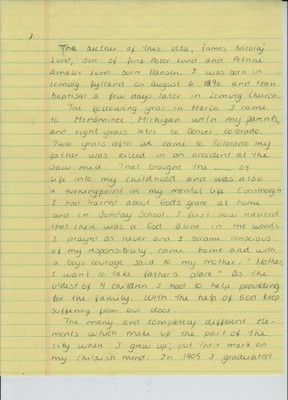 1
The author of this vita, James Nicolaj
Lund, son of Jens Peter Lund and Petrine
Amalie Lund born Hansen. I was born in
Lemvig Jylland on August 6 1890 and then
baptised a few days later in Lemvig Church.
The following year in March I came
to Menominee Michigan with my parents,
and eight years later to Denver, Colorado.
Two years after we came to Colorado my
father was killed in an accident at the
saw-mill. That brought the ___ of
life into my childhood and was also
a turningpoint in my mental life. Eventhough
I had learned about God's grace at home
and in Sunday School, I first now realized
that there was a God. Alone in the woods
I prayed as never and I became conscious
of my responsibility, came home and with
a boys courage said to my mother: "Mother,
I want to take father's place." As the
oldest of 4 children I had to help providing
for the family. With the help of God keep
suffering from our door.
The many and completely different ele-
ments which make up the part of the
city where I grew up, put their mark on
my childish mind. In 1905 I graduated